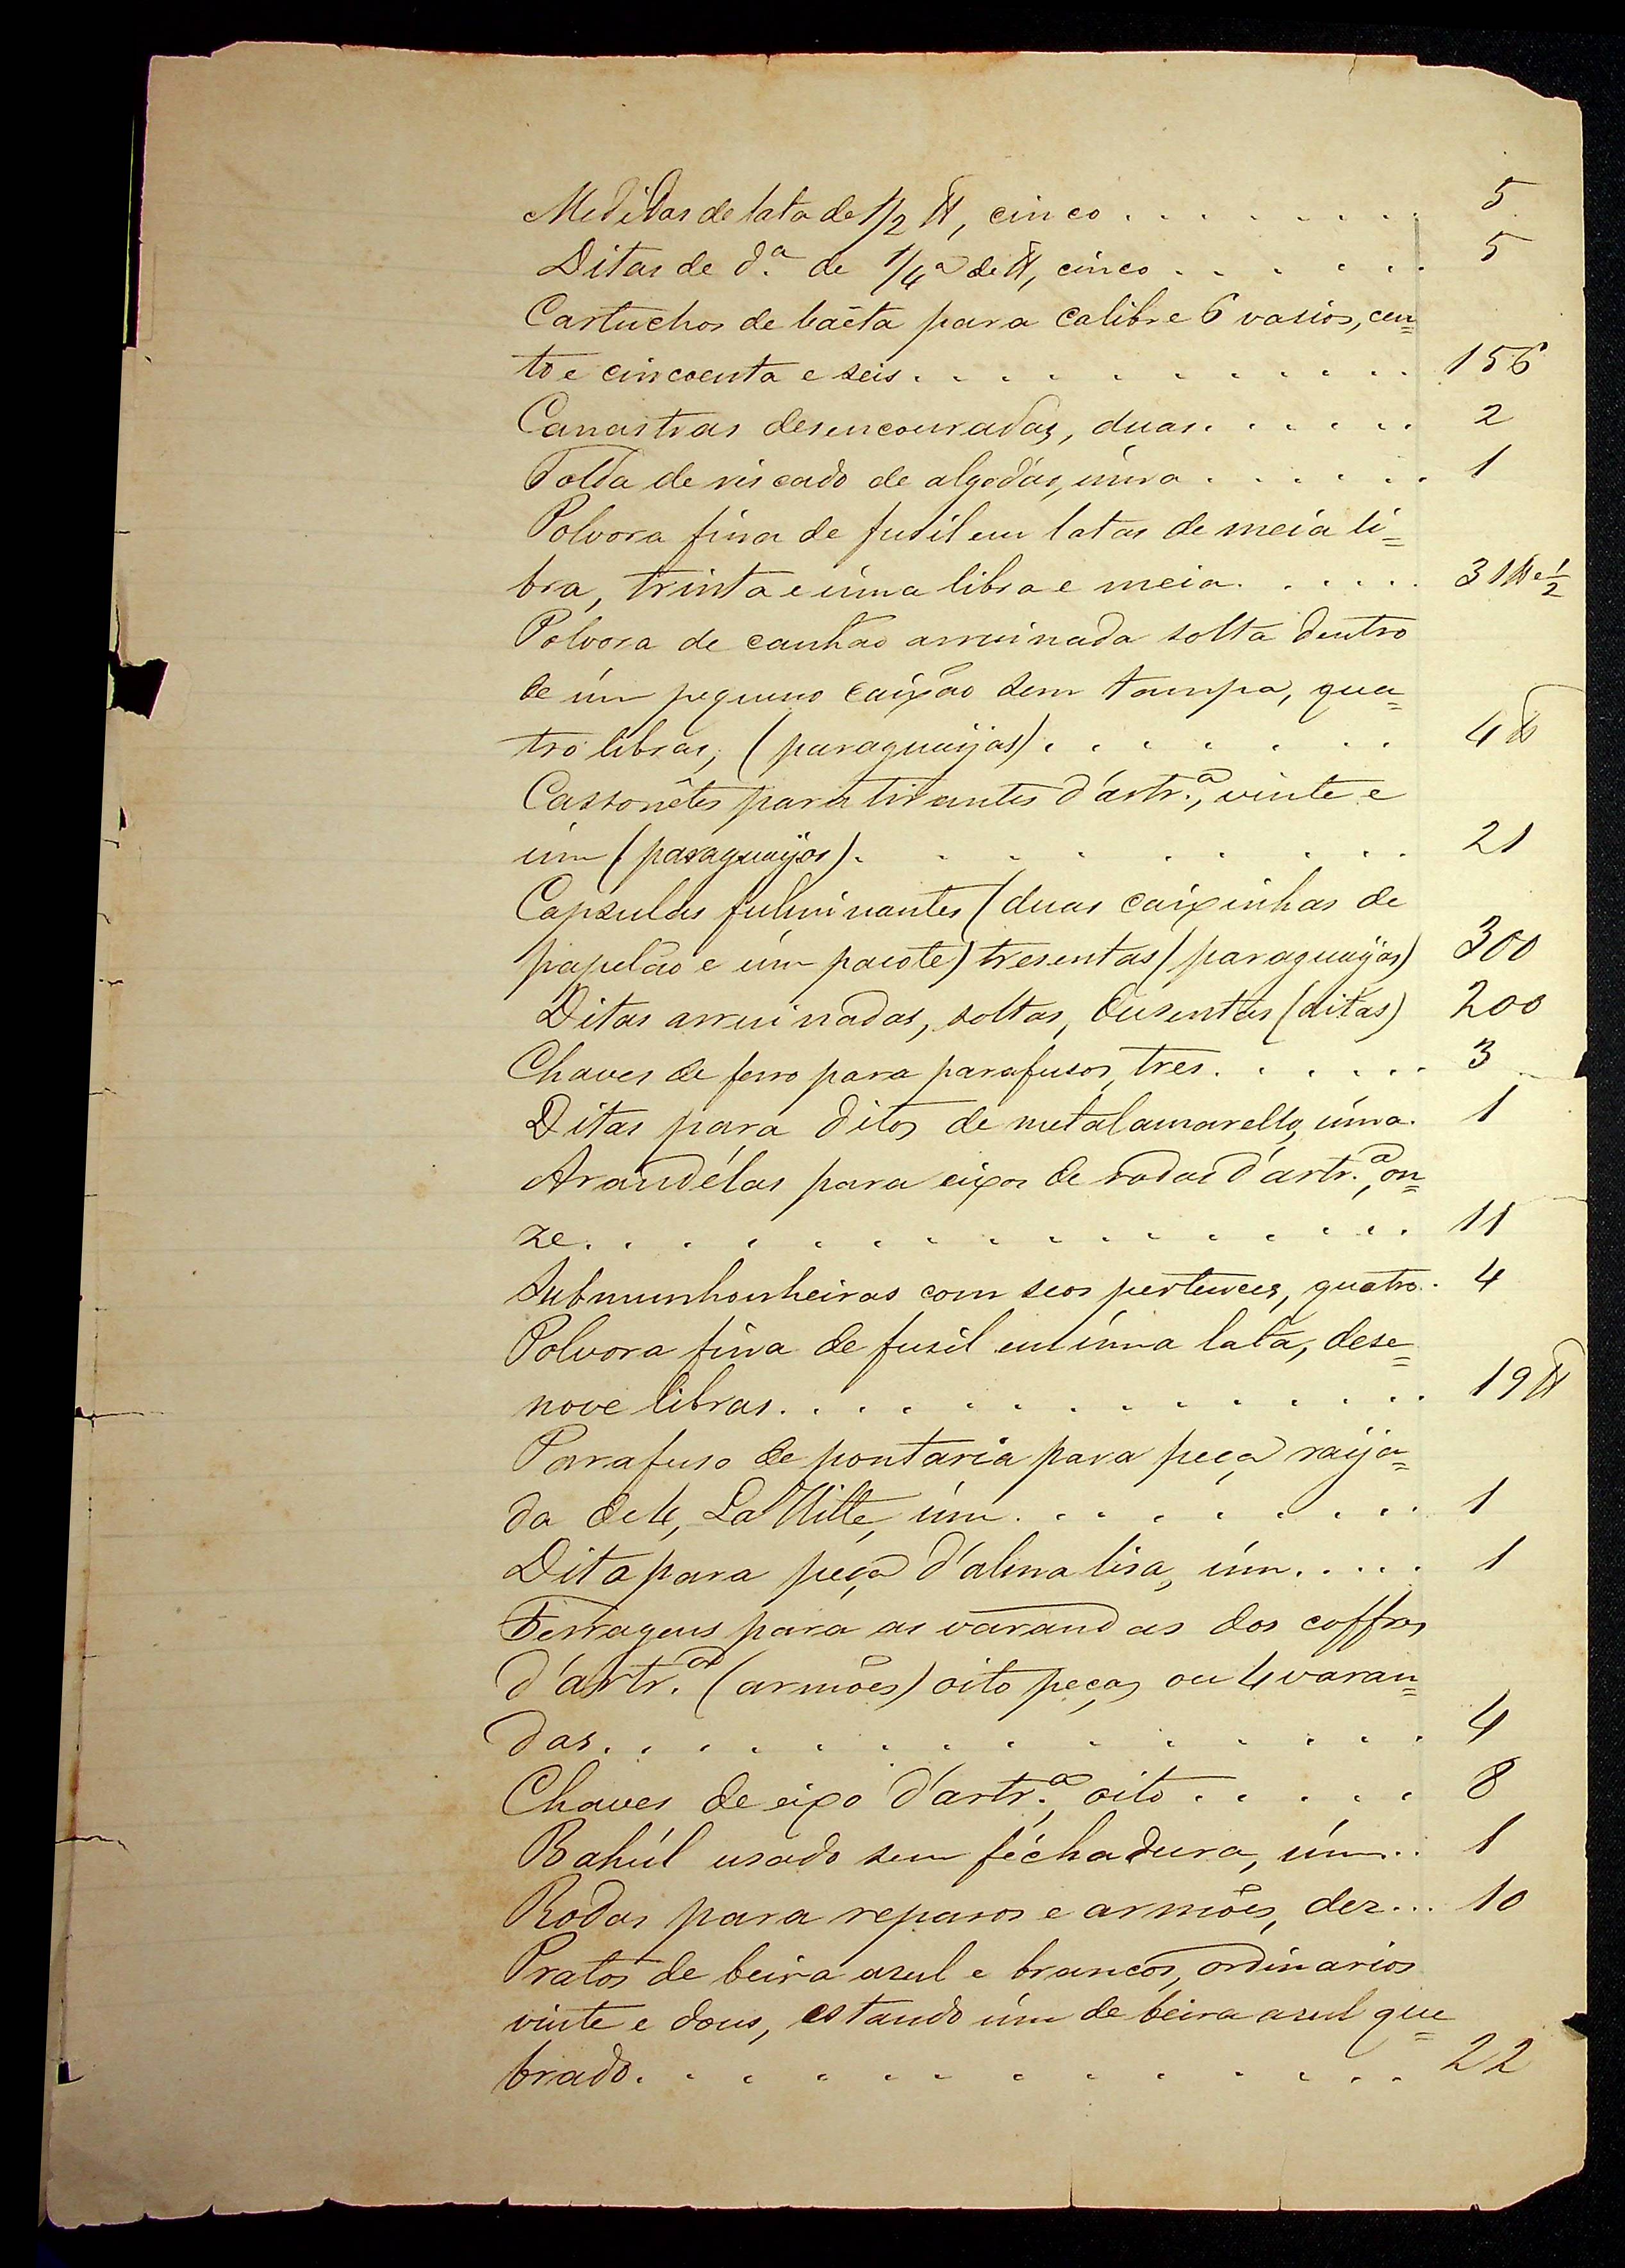 Medidas de lata de 1/2 ℔, cinco . . . . . . . . 5
Ditas de d.ª de 1/4ª de ℔, cinco . . . . . . 5
Cartuchos de baêta para calibre 6 vasios, cen=
to e cincoenta e seis . . . . . . . . . . 156
Canastras desencouradas, duas . . . . . . 2
Tolda de riscado de algodão, úma . . . . . . 1
Polvora fina de fusil em latas de meia li=
bra, trinta e úma libra e meia . . . . . 31 ℔ e 1/2
Polvora de canhão arruinada solta dentro
de úm pequeno caixão sem tampa, qua=
tro libras, (paraguayas) . . . . . . . 4 ℔
Cassonêtes para tirantes d'artr.ª, vinte e
úm (paraguayos) . . . . . . . . 21
Capsulas fulminantes (duas caixinhas de
papelão e úm pacote) tresentas (paraguayas) 300
Ditas arruinadas, soltas, dusentas (ditas) 200
Chaves de ferro para parafusos, tres . . . . . . 3
Ditas para ditos de metal amarello, úma . 1
Arandélas para eixos de rodas d'artr.ª, on=
ze . . . . . . . . . . . . . . . 11
Submunhonheiras com seos pertences, quatro . 4
Polvora fina de fusil em úma lata, dese=
nove libras . . . . . . . . . . . . 19 ℔
Parafuso de pontaria para peça raya=
da de 4, La Hitte, úm . . . . . . . . 1
Dito para peça d'alma lisa, úm . . . . . 1
Ferragens para as varandas dos coffres
d'artr.ª (armões) oito peças ou 4 varan=
das . . . . . . . . . . . . . . 4
Chaves de eixo d'artr.ª, oito . . . . . 8
Bahúl usado sem féchadura, úm . . 1
Rodas para reparos e armões, dez . . . 10
Pratos de beira asul e brancos, ordinarios
vinte e dous, estando úm de beira asul que=
brado . . . . . . . . . . . . . 22